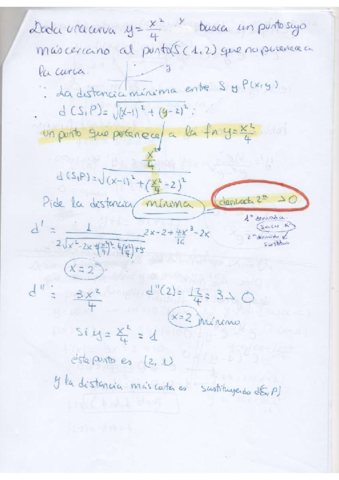 Dada una curva y = x²/4 y busca un punto suyo
más cercano al punto S(1,2) que no pertenece a
la curva.
∴ La distancia mínima entre S y P(x,y)
d(S,P) = √((x-1)² + (y-2)²) :
un punto que pertenece a la fn y = x²/4
x²/4
d(S,P) = √((x-1)² + (x²/4 - 2)²)
Pide la distancia mínima derivada 2ª > 0
1ª derivada
saco x
2ª deriva y
sustituyo
d' = 1
2x-2+4x³/16-2x
x=2
d'': 3x²/4 d''(2) = 12/4 = 3 > 0
x=2 mínimo
Si y = x²/4 = 1
este punto es (2,1)
y la distancia más corta es sustituyendo d(S,P)